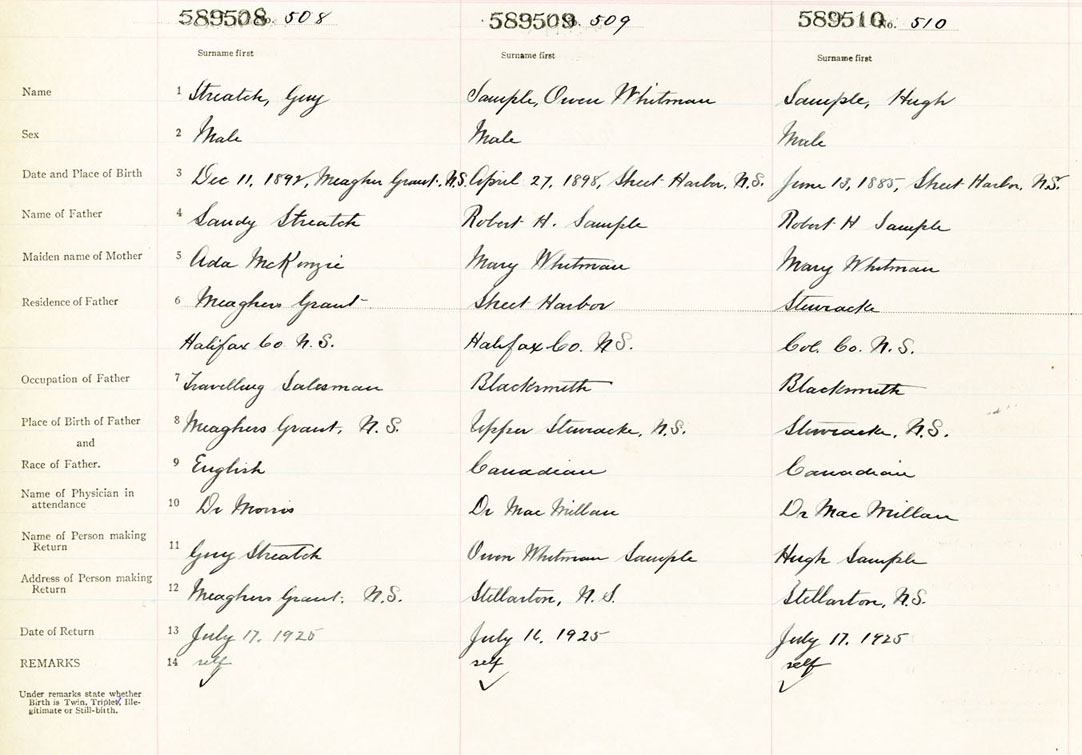 589508 No. 508 589509 No. 509 589510 No. 510
Surname first Surname first Surname first
Name 1 Streatch, Guy Sample, Owen Whitman Sample, Hugh
Sex 2 Male Male Male
Date and Place of Birth 3 Dec 11, 1892, Meagher Grant. N.S. April 27, 1898, Sheet Harbor, N.S. June 13, 1885, Sheet Harbor, N.S.
Name of Father 4 Sandy Streatch Robert H. Sample Robert H Sample
Maiden name of Mother 5 Ada McKenzie Mary Whitman Mary Whitman
Residence of Father 6 Meaghers Grant Sheet Harbor Stewiacke
Halifax Co N.S. Halifax Co. N.S. Col. Co. N.S.
Occupation of Father 7 Travelling Salesman Blacksmith Blacksmith
Place of Birth of Father 8 Meaghers Grant, N.S. Upper Stewiacke, N.S. Stewiacke, N.S.
and
Race of Father. 9 English Canadian Canadian
Name of Physician in
attendance 10 Dr Morris Dr MacMillan Dr MacMillan
Name of Person making
Return 11 Guy Streatch Owen Whitman Sample Hugh Sample
Address of Person making
Return 12 Meaghers Grant. N.S. Stellarton, N.S Stellarton, N.S.
Date of Return 13 July 17, 1925 July 16, 1925 July 17, 1925
REMARKS 14 self self self
Under remarks state whether
Birth is Twin, Triplet, Ille-
gitimate or Still-birth.